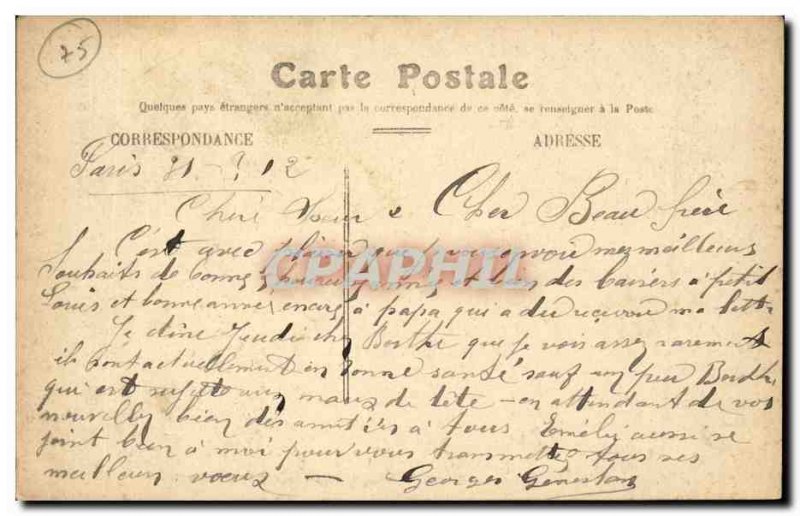 75
Carte Postale
Quelques pays étrangers n'acceptant pas la correspondance de ce côté, se renseigner à la Poste
CORRESPONDANCE
ADRESSE
Paris 31 - 12
Chère Sœur & Cher Beau frère
C'est avec plaisir que je vous envoie mes meilleurs
Souhaits de bonne & heureuse année et bien des baisers à petit
Louis et bonne année encore à papa qui a du recevoir ma lettre
Je dîne Jeudi chez Berthe que je vois assez rarement
ils sont actuellement en bonne santé sauf un peu Berthe
qui est sujete aux maux de tête - en attendant de vos
nouvelles bien des amitiés à tous Emélie aussi se
joint bien à moi pour vous transmettre tous ses
meilleurs vœux - Georges
CPAPHIL